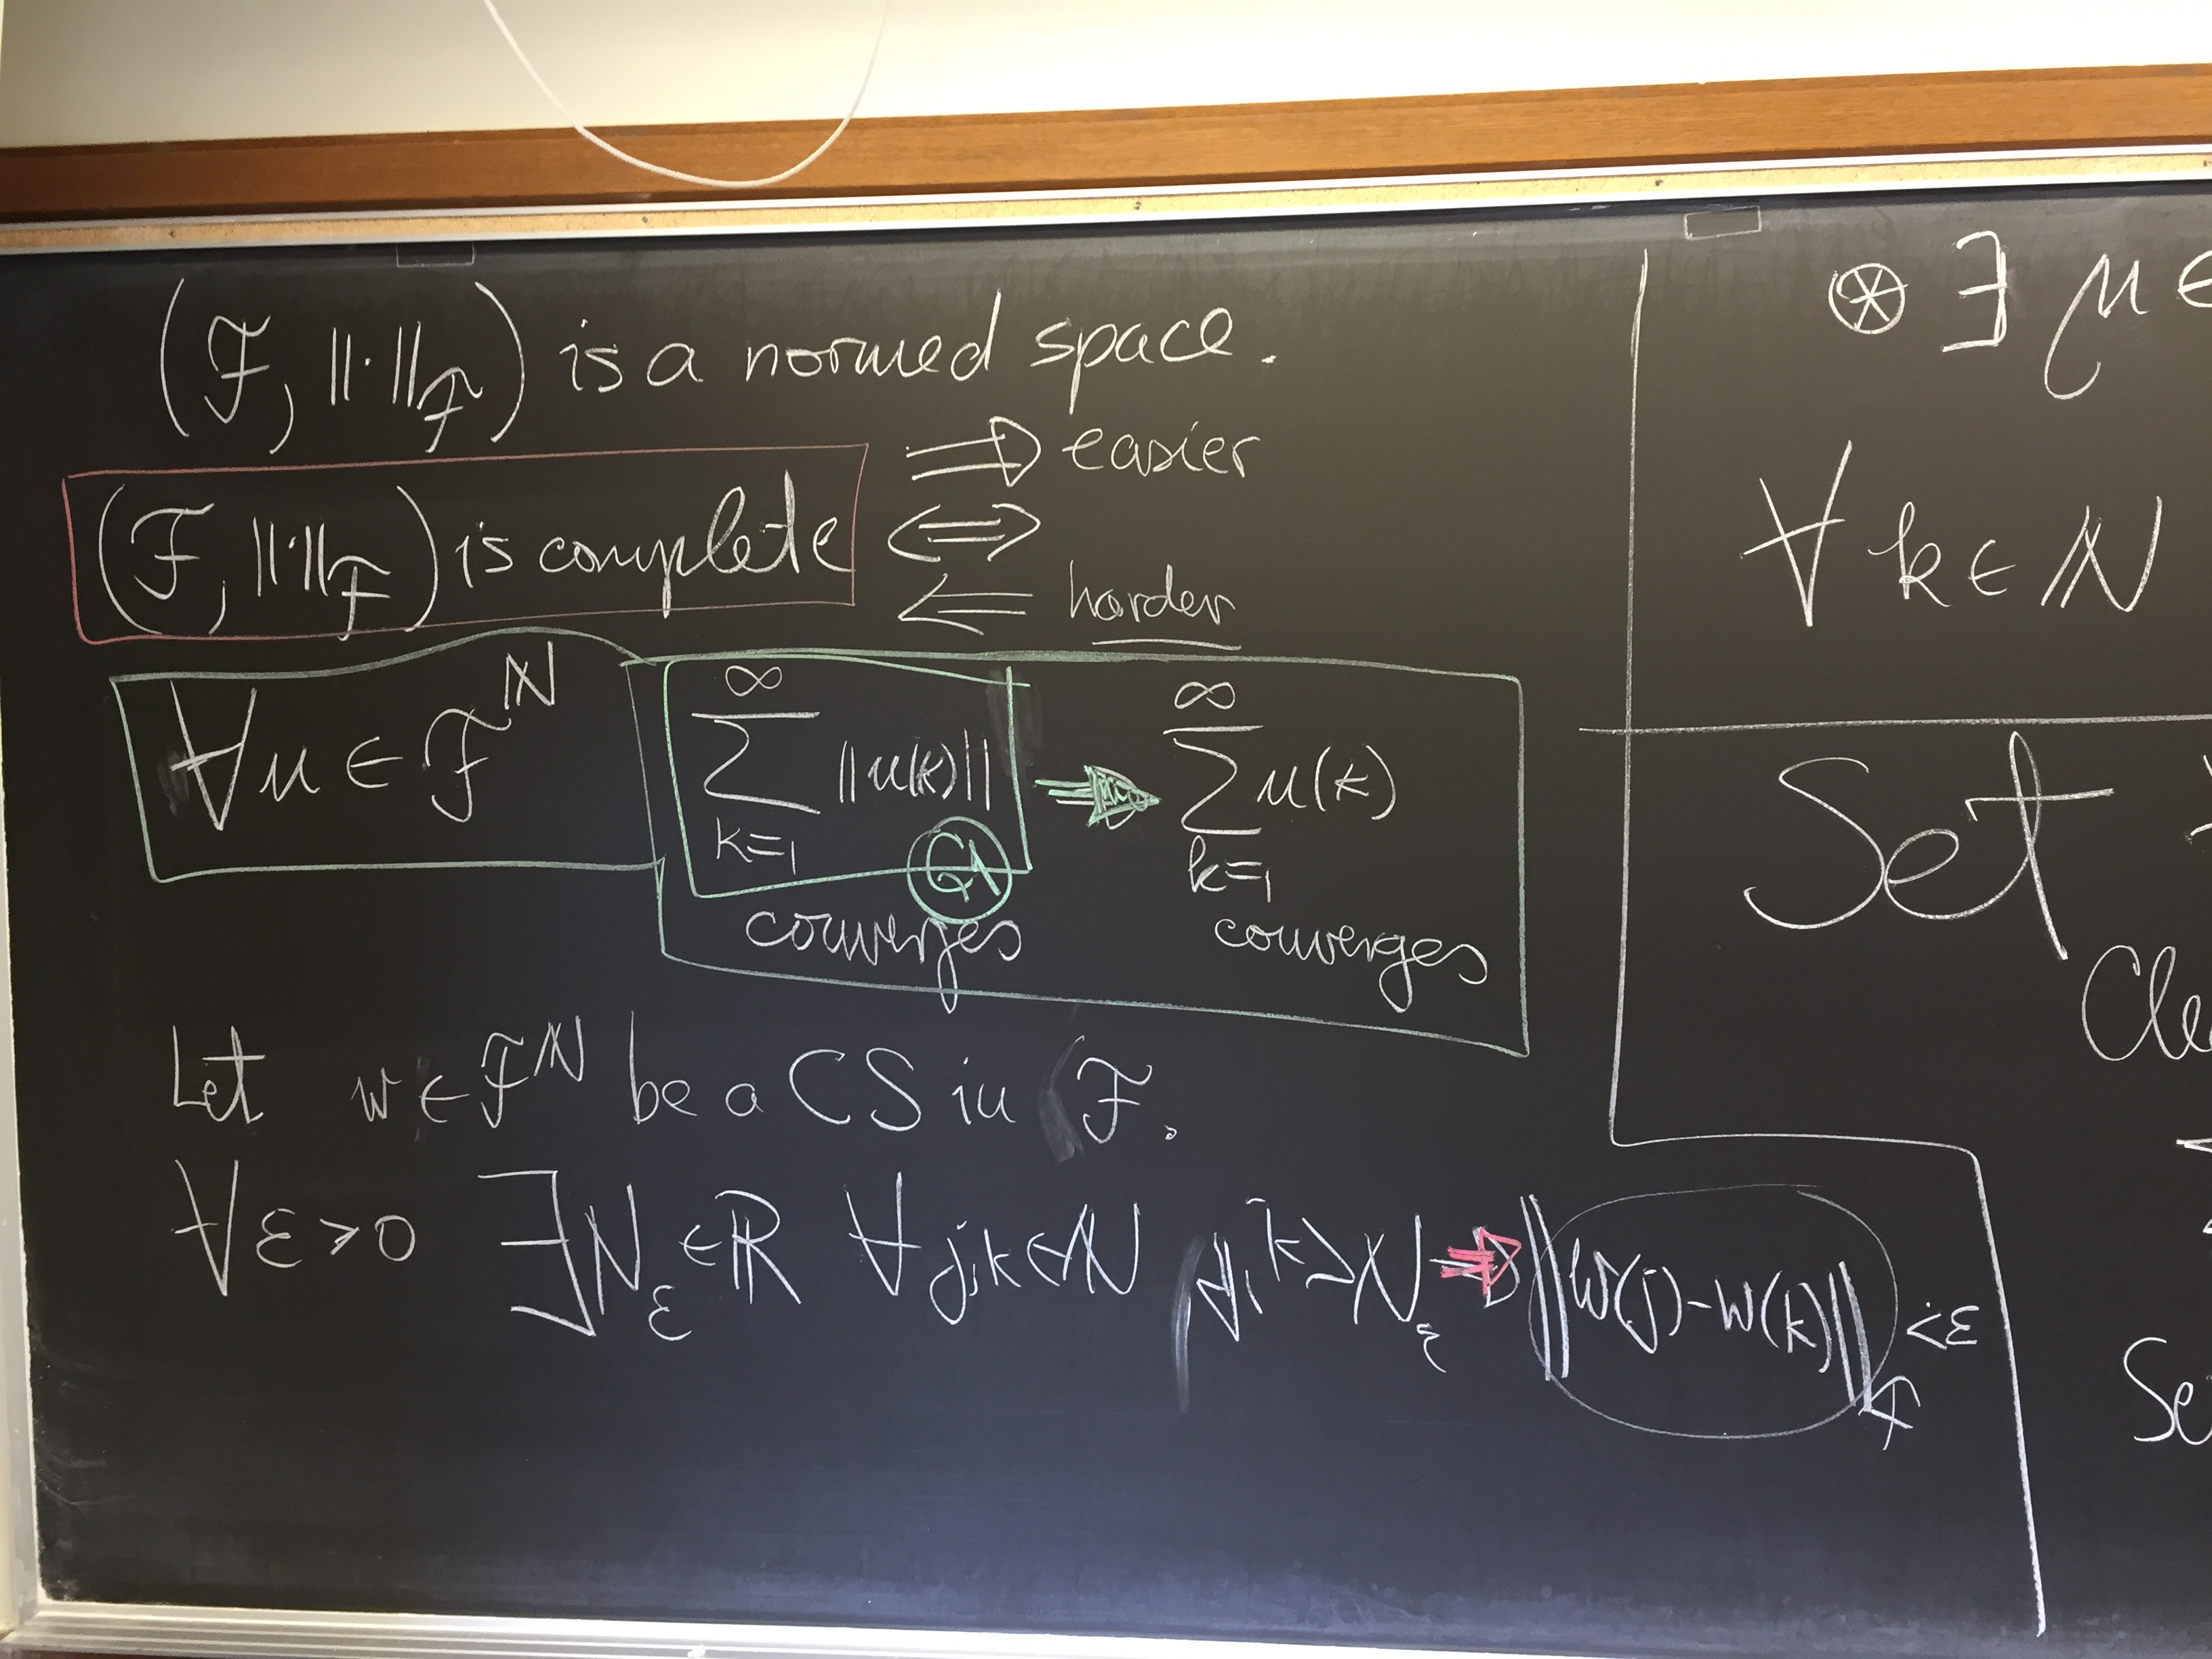 (ℱ, ||·||_ℱ) is a normed space.
⇒ easier
(ℱ, ||·||_ℱ) is complete ⇔
⇐ harder
∀u ∈ ℱ^ℕ ∑_{k=1}^∞ ||u(k)|| converges ⇒ ∑_{k=1}^∞ u(k) converges
G1
Let w ∈ ℱ^ℕ be a CS in ℱ.
∀ε>0 ∃N_ε∈ℝ ∀j,k∈ℕ j,k≥N_ε ⇒ ||w(j)-w(k)||_ℱ < ε
⊛ ∃ μ ∈
∀ k ∈ ℕ
Set
Cle
Se